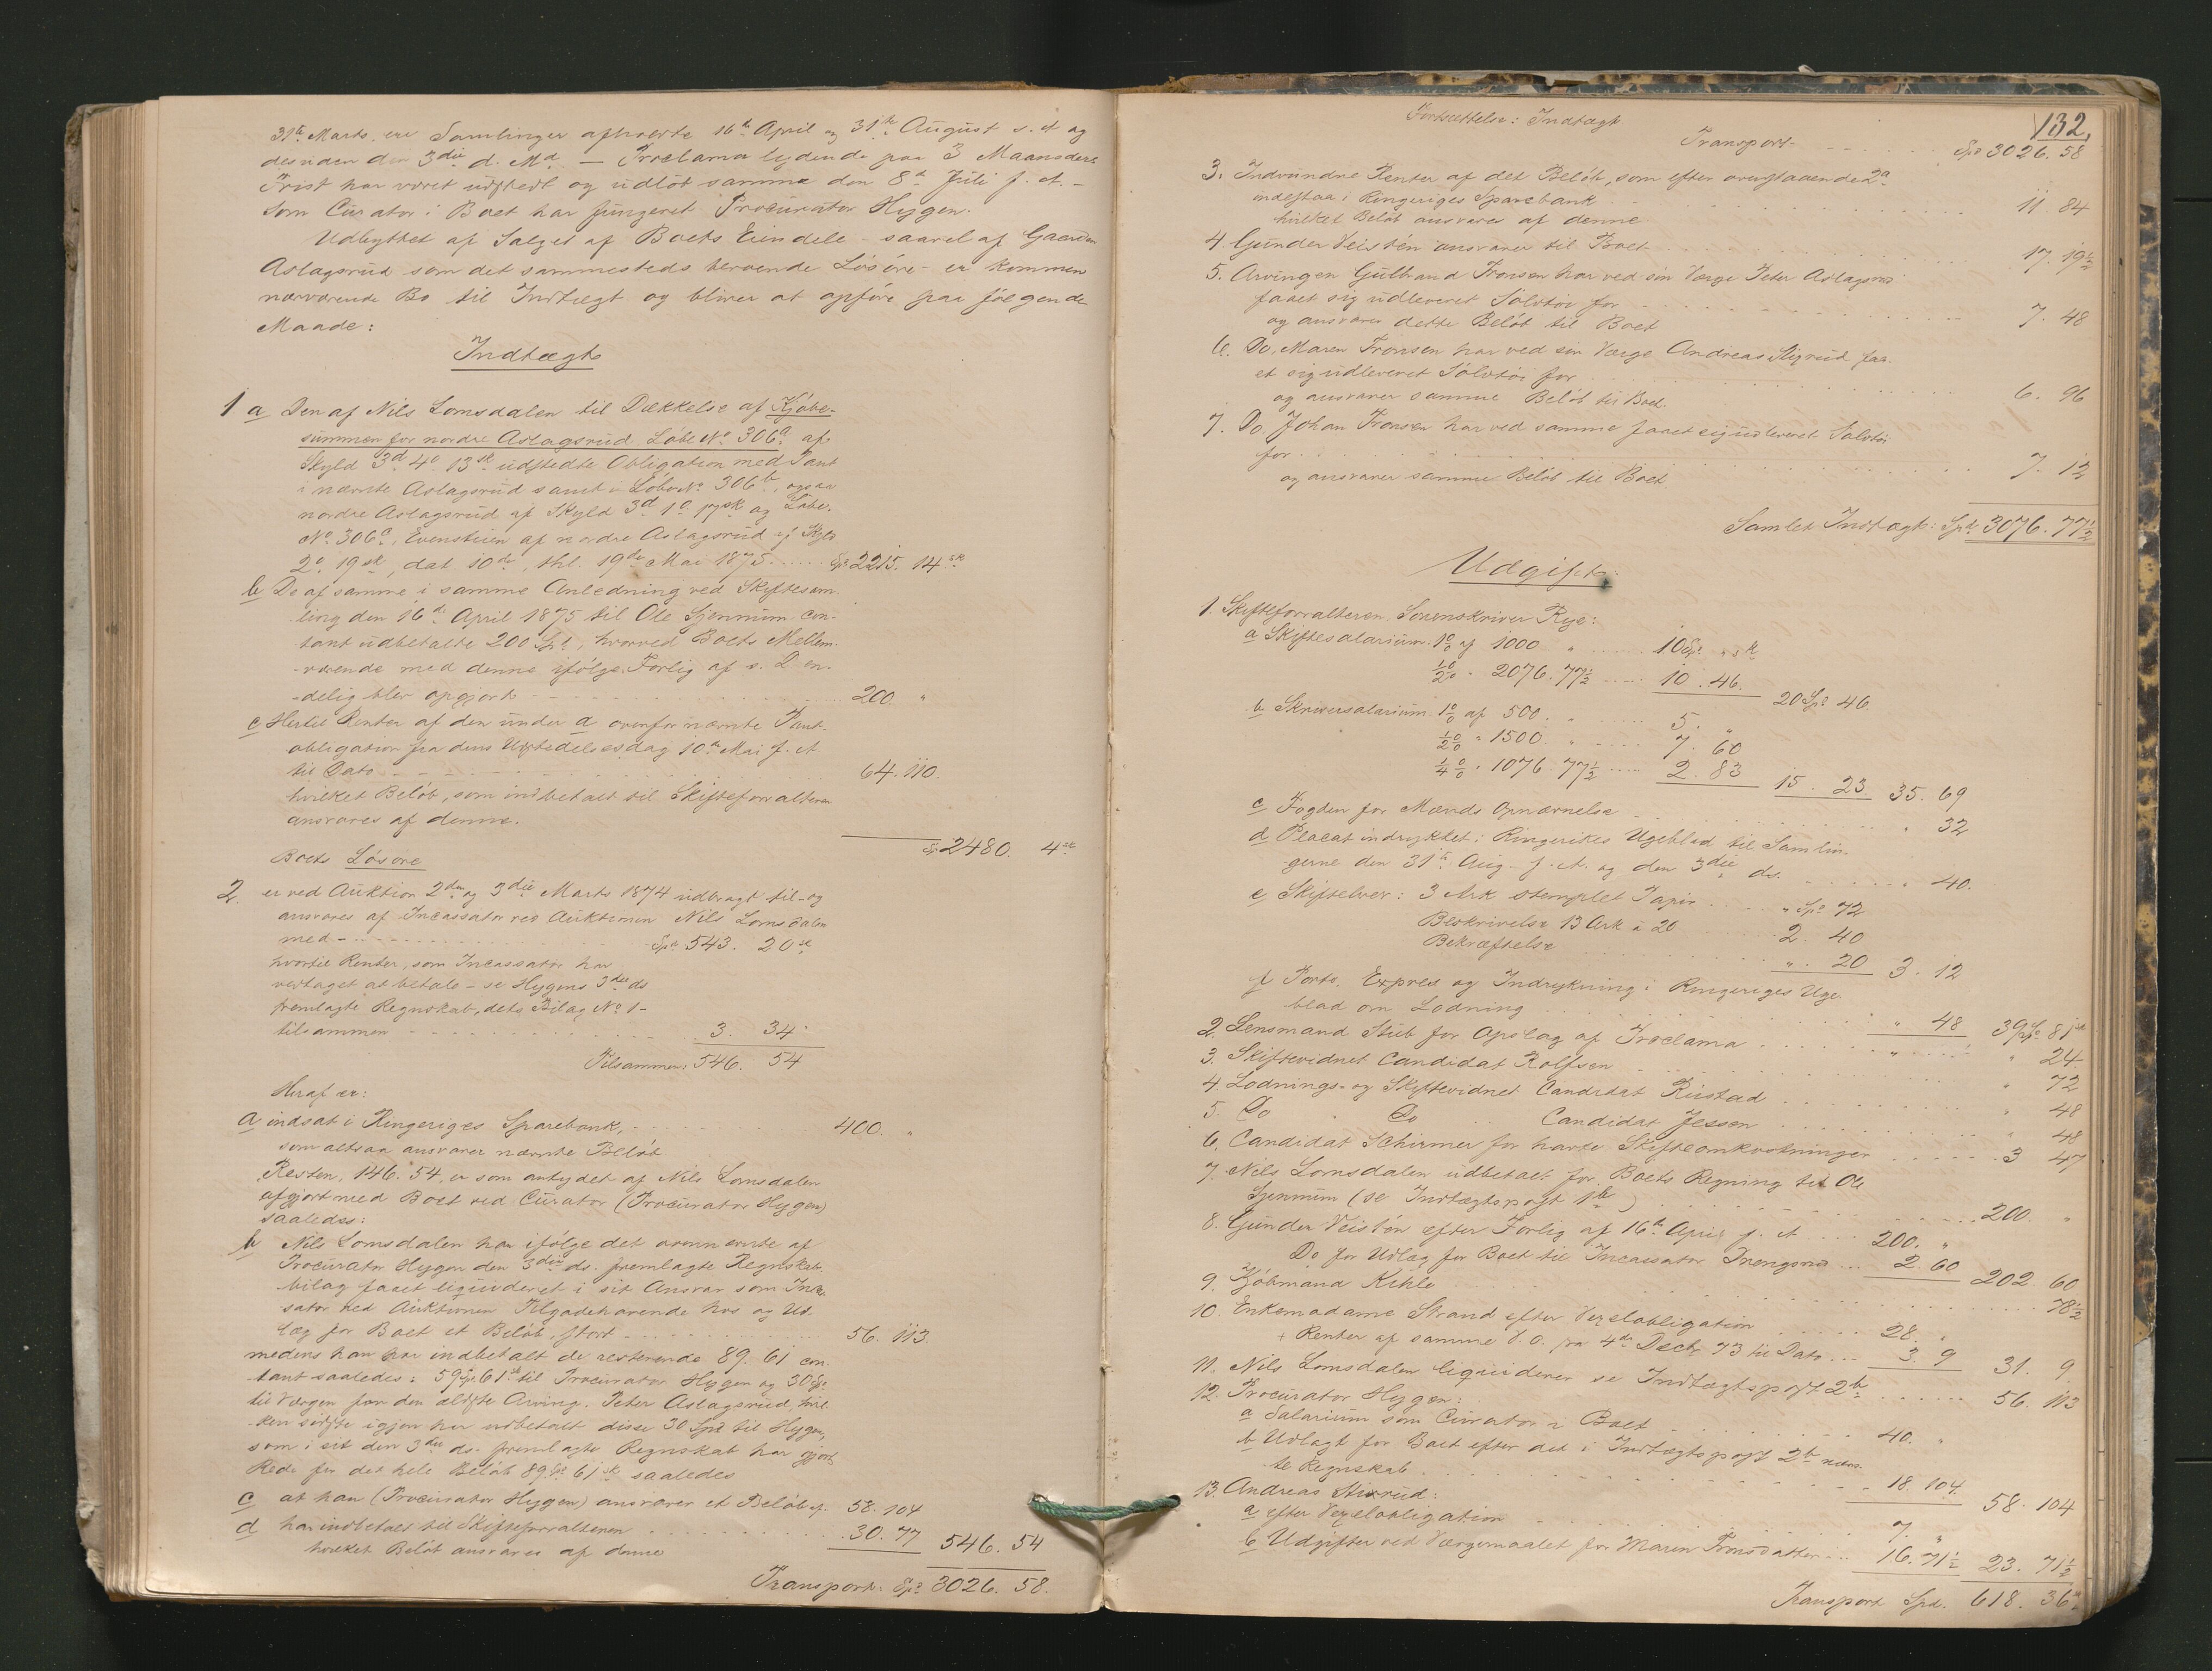 31te Marts, ere Samlinger afholdte 16de April og 31te August s. A. og
desuden den 3die d. Md. — Proclama lydende paa 3 Maaneders
Frist har været udstedt og udløb samme den 8de Juli f. A. –
Som Curator i Boet har fungeret Procurator Hygen.
Udbyttet af Salget af Boets Eiendele – saavel af Gaarden
Aslagsrud som det sammesteds beroende Løsøre – er kommen
nærværende Bo til Indtægt og bliver at opføre paa følgende
Maade:
Indtægt
1 a Den af Nils Lomsdalen til Dækkelse af Kjøbe-
summen for nordre Aslagsrud Løbe No 306a af
Skyld 3d 4o 13sk udstedte Obligation med Pant
i nævnte Aslagsrud samt i Løbe No 306b, ogsaa
nordre Aslagsrud af Skyld 3d 1o 17sk og Løbe-
No 306c, Evenstuen af nordre Aslagsrud af Skyld
2o 19sk, dat 10de, thl. 19de Mai 1875 . . . . Spd 2215. 14sk
b Do af samme i samme Anledning ved Skiftesam-
ling den 16de April 1875 til Ole Gjermum con-
tant udbetalte 200 Spd, hvorved Boets Mellem-
værende med denne ifølge Forlig af s. D. en-
delig blev opgjort . . . 200. "
c Hertil Renter af den under a ovenfor nævnte Pant-
obligation fra dens Udstedelsesdag 10de Mai f. A.
til Dato . . . 64. 110.
hvilket Beløb, som indbetalt til Skifteforvalteren
ansvares af denne.
Spd 2480. 4sk
Boets Løsøre
2. er ved Auktion 2den og 3die Marts 1874 udbragt til – og
ansvares af Incassator ved Auktionen Nils Lomsdalen
med . . . Spd 543. 20sk
hvortil Renter, som Incassator har
vedtaget at betale – se Hygens 3die ds
fremlagte Regnskab, dets Bilag No 1 –
tilsammen . . . 3. 34
Tilsammen: 546. 54
Heraf er:
a indsat i Ringeriges Sparebank, . . . 400. "
som altsaa ansvarer nævnte Beløb
Resten, 146. 54, er som antydet af Nils Lomsdalen
afgjort med Boet ved Curator (Procurator Hygen)
saaledes:
b Nils Lomsdalen har ifølge det ovennævnte af
Procurator Hygen den 3die ds. fremlagte Regnskabs-
bilag faaet liquideret i sit Ansvar som Incas-
sator ved Auktionen Tilgodehavende hos og Ud-
læg for Boet et Beløb, stort . . . 56. 113
medens han har indbetalt de resterende 89. 61 con-
tant saaledes: 59 Spd 61sk til Procurator Hygen og 30 Spd
til Værgen for den ældste Arving, Peter Aslagsrud, hvil-
ken sidste igjen har udbetalt disse 30 Spd til Hygen,
som i sit den 3die ds. fremlagte Regnskab har gjort
Rede for det hele Beløb 89 Spd 61sk saaledes
c at han (Procurator Hygen) ansvarer et Beløb af 58. 104
d har indbetalt til Skifteforvalteren . . . 30. 77 546. 54
hvilket Beløb ansvares af denne
Transport: Spd 3026. 58.
132.
Fortsættelse: Indtægt
Transport . . . Spd 3026. 58
3. Indvundne Renter af det Beløb, som efter ovenstaaende 2a
indestaa i Ringeriges Sparebank . . . 11. 84
hvilket Beløb ansvares af denne
4. Gunder Veisten ansvarer til Boet . . . 17. 19½
5. Arvingen Gulbrand Fronsen har ved sin Værge Peter Aslagsrud
faaet sig udleveret Sølvtøi for . . . 7. 48
og ansvarer dette Beløb til Boet
6. Do. Maren Fronsen har ved sin Værge Andreas Stixrud faa-
et sig udleveret Sølvtøi for . . . 6. 96
og ansvarer samme Beløb til Boet.
7. Do. Johan Fronsen har ved samme faaet sig udleveret Sølvtøi
for . . . 7. 12
og ansvarer samme Beløb til Boet
Samlet Indtægt: Spd 3076. 77½
Udgift:
1. Skifteforvalteren Sorenskriver Rye:
a Skiftesalarium 1% af 1000 " . . . 10 Spd " sk
½% - 2076. 77½ . . . 10. 46. 20 Spd 46.
b Skriversalarium 1% af 500. " . . . 5. "
½% " 1500. " . . . 7. 60
¼% " 1076. 77½ . . . 2. 83 15. 23. 35. 69
c Fogden for Mænds Opnævnelse . . . " 32
d Placat indrykket i Ringerikes Ugeblad til Samlin-
gerne den 31te Aug. f. A. og den 3die ds. . . . " 40.
e Skiftebrev: 3 Ark stemplet Papir . . . " Spd 72
Beskrivelse 13 Ark à 20 . . . 2. 40
Bekræftelse . . . ". 20 3. 12
f Porto, Expres og Indrykning i Ringeriges Uge-
blad om Lodning . . . " 48 39 Spd 81sk
2. Lensmand Stub for Opslag af Proclama . . . " 24.
3. Skiftevidnet Candidat Rolfsen . . . " 72
4. Lodnings- og Skiftevidnet Candidat Rustad . . . " 48
5. Do Do Candidat Jessen . . . " 48
6. Candidat Schirmer for havte Skifteomkostninger . . . 3 47
7. Nils Lomsdalen udbetalt for Boets Regning til Ole
Gjermum (se Indtægtspost 1b) . . . 200. "
8. Gunder Veisten efter Forlig af 16de April f. A . . . 200. "
Do for Udlæg for Boet til Incassator Trengsrud . . . 2. 60 202. 60
9. Kjøbmand Kihle . . . 78½
10. Enkemadame Strand efter Vexelobligation . . . 28. "
+ Renter af samme d. o. fra 4de Decbr 73 til Dato . . . 3. 9 31. 9.
11. Nils Lomsdalen liquiderer se Indtægtspost 2b . . . 56. 113
12. Procurator Hygen:
a Salarium som Curator i Boet . . . 40. "
b Udlagt for Boet efter det i Indtægtspost 2b nævn-
te Regnskab . . . 18. 104. 58. 104
13. Andreas Stixrud:
a efter Vexelobligation . . . 7. "
b Udgifter ved Værgemaalet for Maren Fronsdatter . . . 16. 71½ 23. 71½
Transport Spd. 618. 36